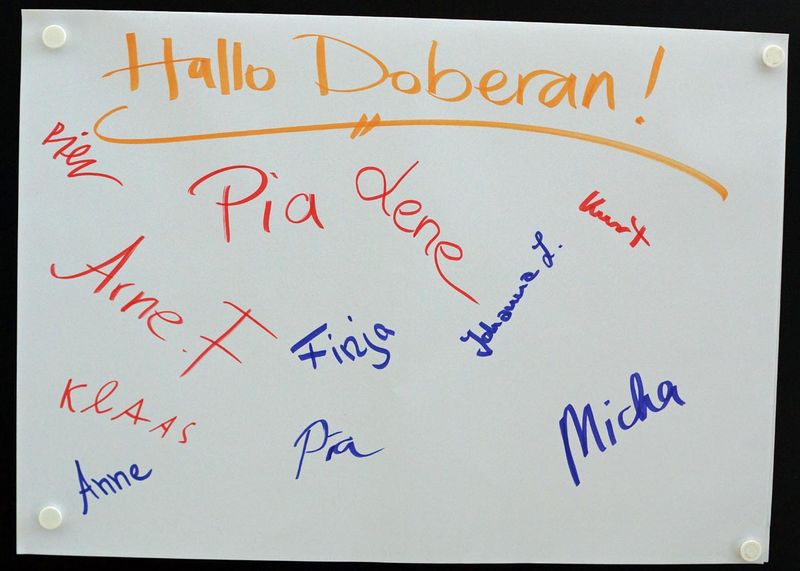 Hallo Doberan!
Pia
Lene
Kurt
Arne.F
Finja
Johanna L.
KlAAS
Micha
Anne
Pia